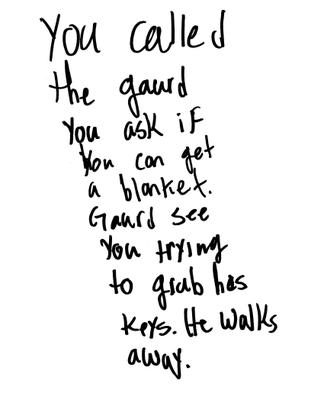 You called
the gaurd
You ask if
You can get
a blanket.
Gaurd see
You trying
to grab his
keys. He walks
away.